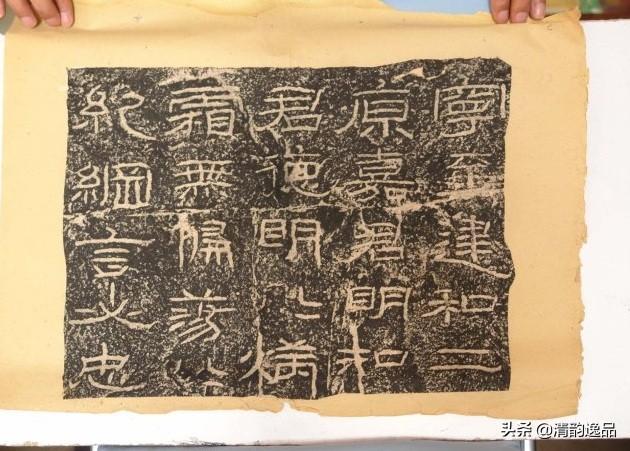 寧至建和二
原嘉君明知
君德明明炳
霜無偏蕩蕩
紀綱言必忠
头条 @清韵逸品